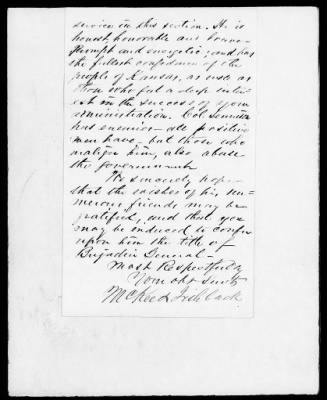 service in this section. He is
honest, honorable and brave —
prompt and energetic; and has
the fullest confidence of the
people of Kansas, as well as
those who feel a deep inter-
est in the success of your
administration. Col.
has enemies — all positive
men have — but those who
malign him, also abuse
the government.
We sincerely hope
that the wishes of his nu-
merous friends may be
gratified, and that you
may be induced to confer
upon him the title of
Brigadier General —
Most Respectfully
Your obt servts
McKee & Fishback